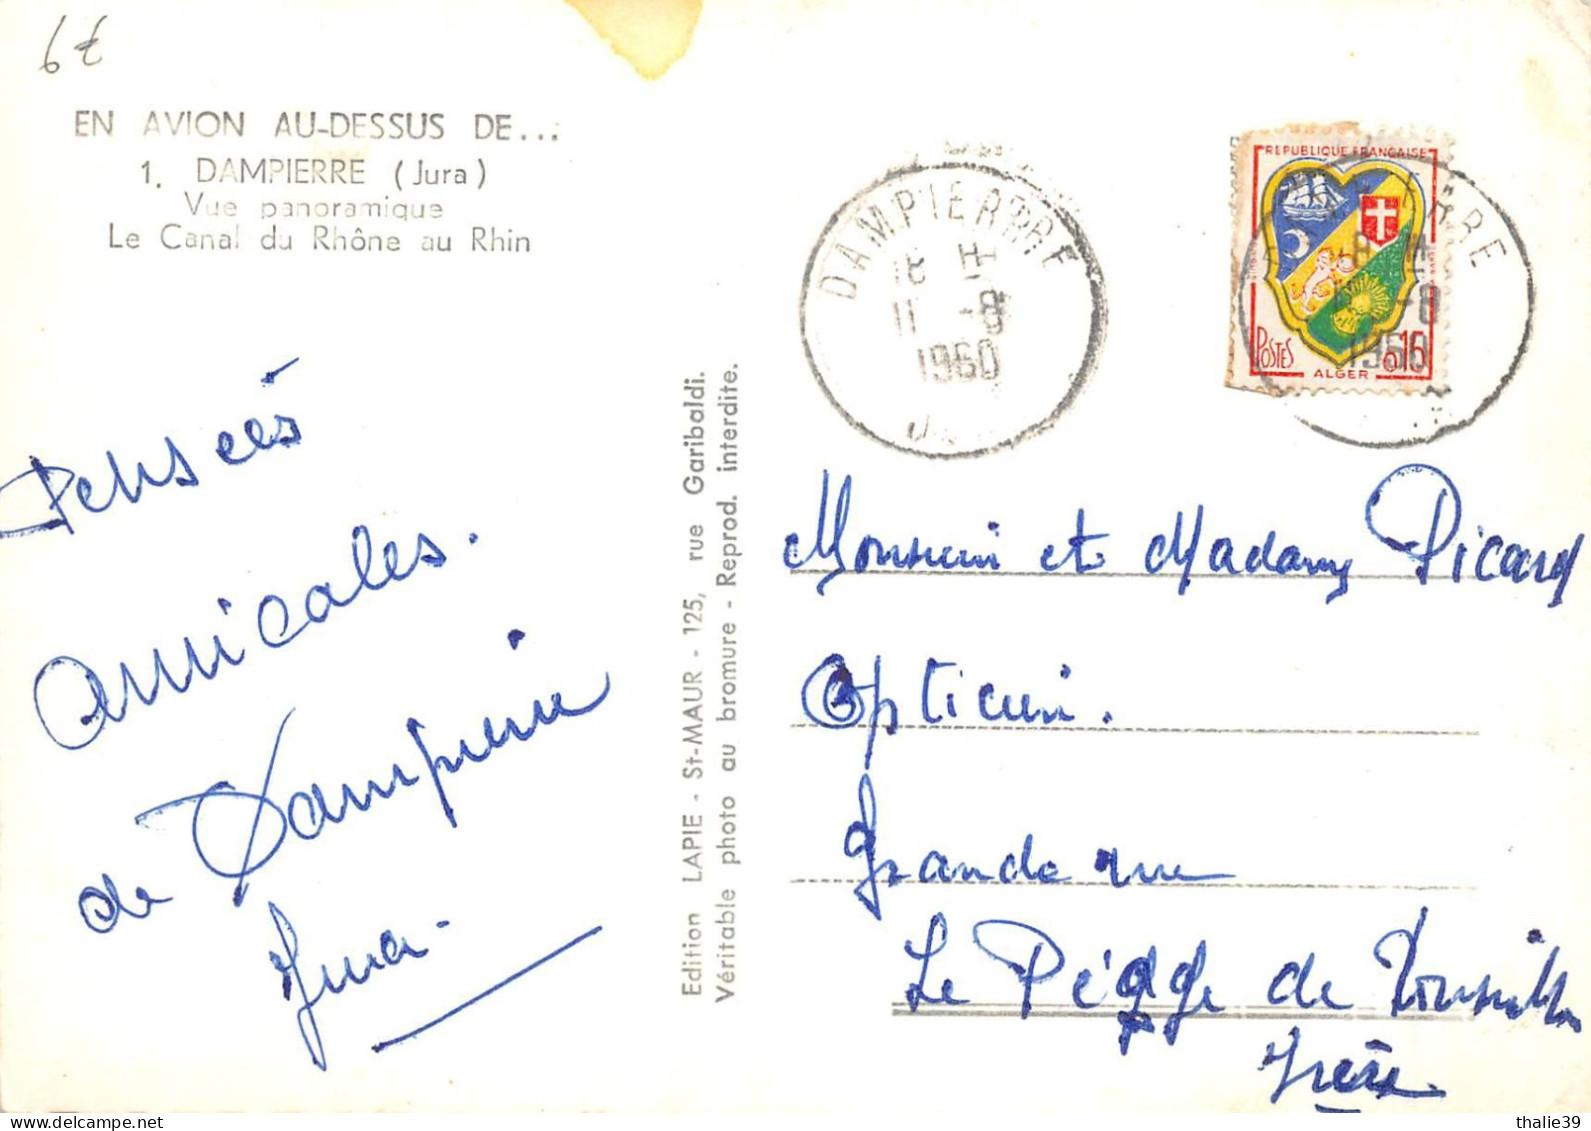 6€
EN AVION AU-DESSUS DE...
1. DAMPIERRE (Jura)
Vue panoramique
Le Canal du Rhône au Rhin
Pensées
amicales.
de Dampierre
Jura.
Edition LAPIE - St-MAUR - 125, rue Garibaldi.
Véritable photo au bromure - Reprod. interdite.
DAMPIERRE
18 H
11 -8
1960
REPUBLIQUE FRANÇAISE
POSTES
ALGER
0,15
18 H
-8
1960
Monsieur et Madame Picard
Opticien.
Grande rue
Le Péage de Roussillon
Isère
thalie39